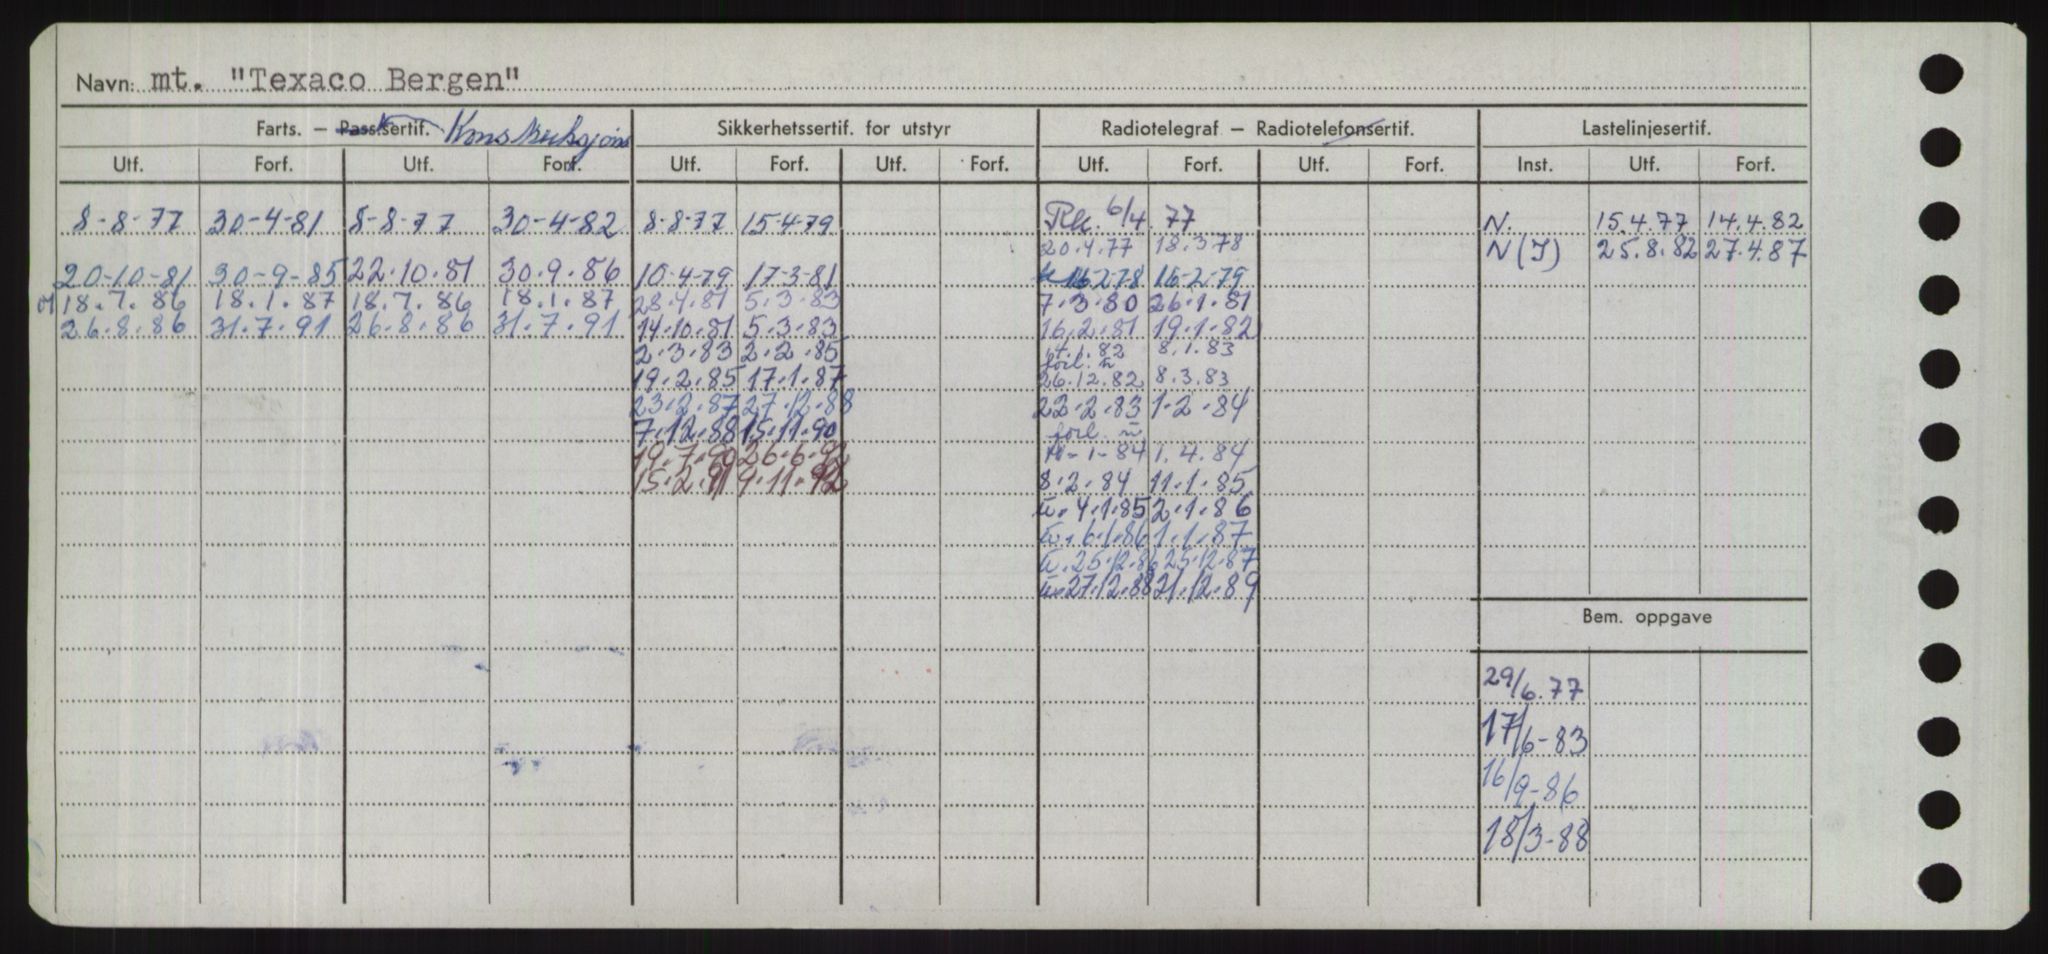 Navn: mt. "Texaco Bergen"
Farts. — Pass.sertif. Konstruksjons Sikkerhetssertif. for utstyr Radiotelegraf — Radiotelefonsertif. Lastelinjesertif.
Utf. Forf. Utf. Forf. Utf. Forf. Utf. Forf. Utf. Forf. Utf. Forf. Inst. Utf. Forf.
8-8-77 30-4-81 8-8-77 30-4-82 8-8-77 15-4-79 6/4.77 N. 15.4.77 14.4.82
20.4.77 18.3.78 N(I) 25.8.82 27.4.87
20-10-81 30-9-85 22.10.81 30.9.86 10-4-79 17-3-81 16-2-78 16-2-79
18.7.86 18.1.87 18.7.86 18.1.87 28.4.81 5.3.83 7.3.80 26.1.81
26.8.86 31.7.91 26.8.86 31.7.91 14.10.81 5.3.83 16.2.81 19.1.82
2.3.83 2.2.85 1.82 8.1.83
forl. u
19.2.85 17.1.87 26.12.82 8.3.83
23.2.87 27.12.88 22.2.83 1.2.84
7.12.88 15.11.90 forl. u
19.7.90 26.6.92 1-84 1.4.84
15.2.91 9.11.92 8.2.84 11.1.85
u. 4.1.85 2.1.86
u. 6.1.86 1.1.87
u. 25.12.86 25.12.87
u. 27.12.88 21.12.89
Bem. oppgave
29/6.77
17/6-83
16/9-86
18/3-88